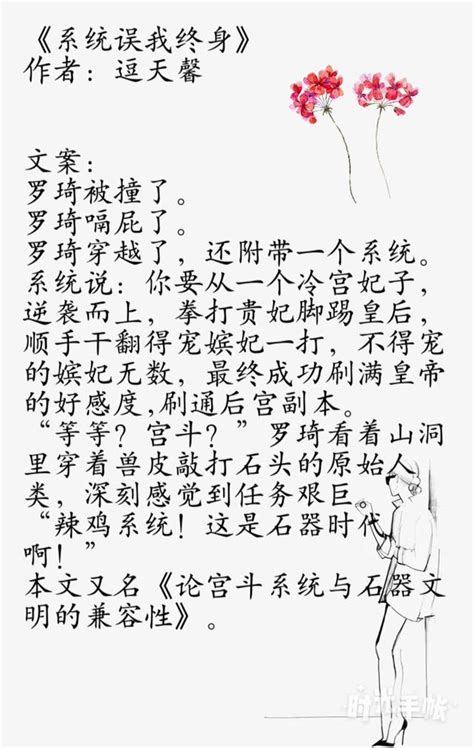 《系统误我终身》
作者：逗天馨
文案：
罗琦被撞了。
罗琦嗝屁了。
罗琦穿越了，还附带一个系统。
系统说：你要从一个冷宫妃子，
逆袭而上，拳打贵妃脚踢皇后，
顺手干翻得宠嫔妃一打，不得宠
的嫔妃无数，最终成功刷满皇帝
的好感度,刷通后宫副本。
“等等？宫斗？”罗琦看着山洞
里穿着兽皮敲打石头的原始人
类，深刻感觉到任务艰巨
“辣鸡系统！这是石器时代
啊！”
本文又名《论宫斗系统与石器文
明的兼容性》。
时本手帐